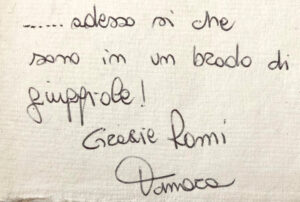 ...... adesso si che
sono in un brodo di
giuggiole!
Grazie Romi
Tamara